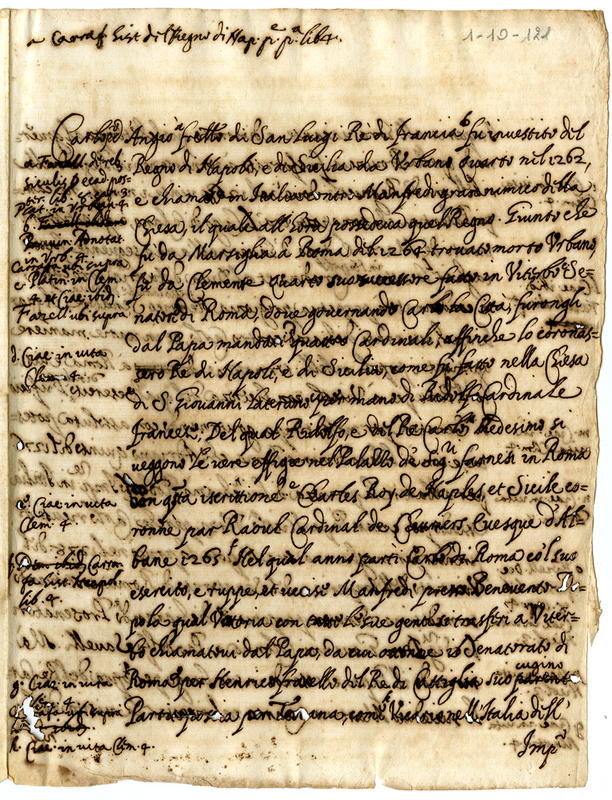 a Carraf. Hist. del Regno di Nap. p.e p.a lib 4.
1-10-121
Carlo Angiò fratello di San Luigi Re di Francia fu investito del
Regno di Napoli, e di Sicilia da Urbano Quarto nel 1262,
e chiamato in Italia contro Manfredi gran nimico della
Chiesa, il quale all'hora possedeva quel Regno. Giunto che
fu da Marsiglia à Roma del 1264 trovato morto Urbano,
fù da Clemente Quarto suo successore fatto in Viterbo Se-
nator di Roma, dove governando Carlo la Città furongli
dal Papa mandati quattro Cardinali, affinche lo coronas-
sero Re di Napoli, e di Sicilia, come fu fatto nella Chiesa
di S. Giovanni Laterano per mano di Ridolfo Cardinale
Francese, Del qual Ridolfo, e del Re Carlo medesimo si
veggono le vere effigie nel Palazzo de Sig.ri Farnesi in Roma
con q.sta iscritione Charles Roy de Naples, et Sicile co-
ronne par Raoul Cardinal de Euesque d'Al-
bane 1265. Nel qual anno partì Carlo di Roma co'l suo
esercito, e ruppe, et uccise Manfredi presso Benevento
qual Vittoria con tutte le sue genti si trasferì a Viter-
bo chiamatovi dal Papa, da cui il Senatorato di
cugino
Roma per Henrico fratello del Re di Castiglia suo parente
Partì poscia per Toscana, nell'Italia dell'
Imp.o
a Fazell. de reb.
siculis Decad. pos-
ter. lib.
Plat. in Vrb. 4.
Panuin. Annotat.
in Vrb. 4.
e Platin. in Clem.
4. et Ciac. ibid.
Fazell. ubi supra
d. Ciac. in vita
Clem. 4.
e. Ciac. in vita
Clem. 4.
fa hist. Neapol.
lib. 4.
g. Ciac. in vita
ubi supra
h. Ciac. in vita Clem. 4.